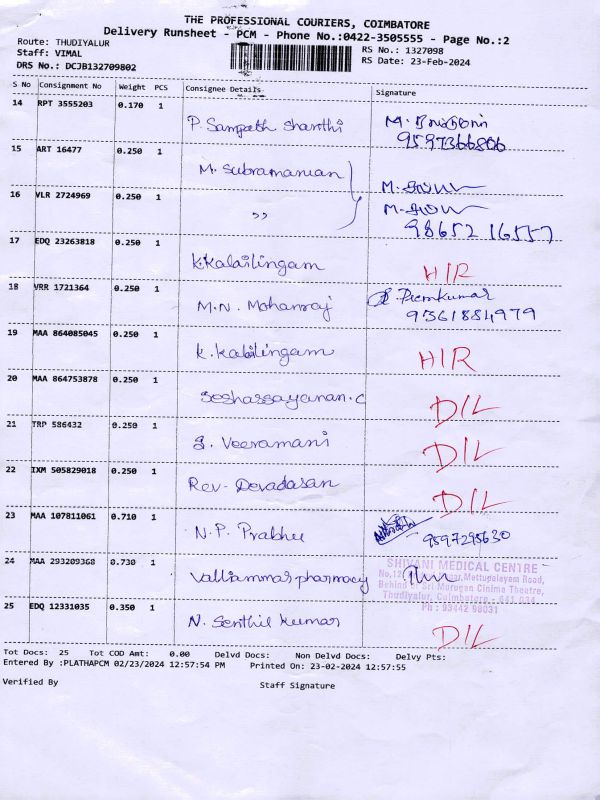 THE PROFESSIONAL COURIERS, COIMBATORE
Delivery Runsheet - PCM - Phone No.:0422-3505555 - Page No.:2
Route: THUDIYALUR
Staff: VIMAL
DRS No.: DCJB132709802
RS No.: 1327098
RS Date: 23-Feb-2024
S No Consignment No Weight PCS Consignee Details Signature
14 RPT 3555203 0.170 1 P. Sampath Shanthi
9597366806
15 ART 16477 0.250 1 M. Subramanian
16 VLR 2724969 0.250 1 ,,
98652 16557
17 EDQ 23263818 0.250 1 K.Kalailingam H/R
18 VRR 1721364 0.250 1 M.N. Mohanraj Premkumar
9361884979
19 MAA 864085045 0.250 1 K. Kalilingam H/R
20 MAA 864753878 0.250 1 Seshassayanan.C D/L
21 TRP 586432 0.250 1 S. Veeramani D/L
22 IXM 505829018 0.250 1 Rev. Devadasan D/L
23 MAA 107811061 0.710 1 N.P. Prabhu 9597295630
24 MAA 293209368 0.730 1 Valliammai pharmacy
SHIVANI MEDICAL CENTRE
Mettupalayam Road,
Behind Sri Murugan Cinima Theatre,
Thudiyalur, Coimbatore - 641 034
Ph : 93442 98031
25 EDQ 12331035 0.350 1 N. Senthil kumar D/L
Tot Docs: 25 Tot COD Amt: 0.00 Delvd Docs: Non Delvd Docs: Delvy Pts:
Entered By :PLATHAPCM 02/23/2024 12:57:54 PM Printed On: 23-02-2024 12:57:55
Verified By Staff Signature